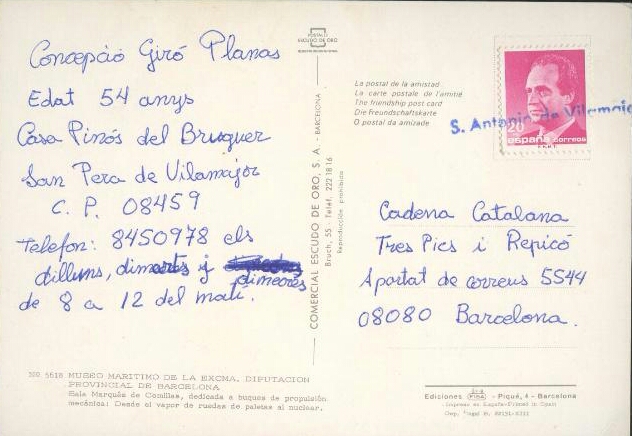 Concepció Giró Planas
Edat 54 anys
Casa Pinós del Bruguer
San Pera de Vilamajor
C. P. 08459
Telefon: 8450978 els
dilluns, dimarts i dimecres
de 8 a 12 del matí.
300 5618 MUSEO MARITIMO DE LA EXCMA. DIPUTACION
PROVINCIAL DE BARCELONA
Sala Marqués de Comillas, dedicada a buques de propulsión
mecánica: Desde el vapor de ruedas de paletas al nuclear.
POSTALES
ESCUDO DE ORO
COMERCIAL ESCUDO DE ORO, S. A. - BARCELONA
Bruch, 55 - Teléf. 222 18 16
Reproducción prohibida
La postal de la amistad
La carte postale de l'amitié
The friendship post card
Die Freundschaftskarte
O postal da amizade
S. Antonio de Vilamajo
20
españa correos
Cadena Catalana
Tres Pics i Repicó
Apartat de correus 5544
08080 Barcelona.
Ediciones FISA - Piqué, 4 - Barcelona
Impreso en España-Printed in Spain